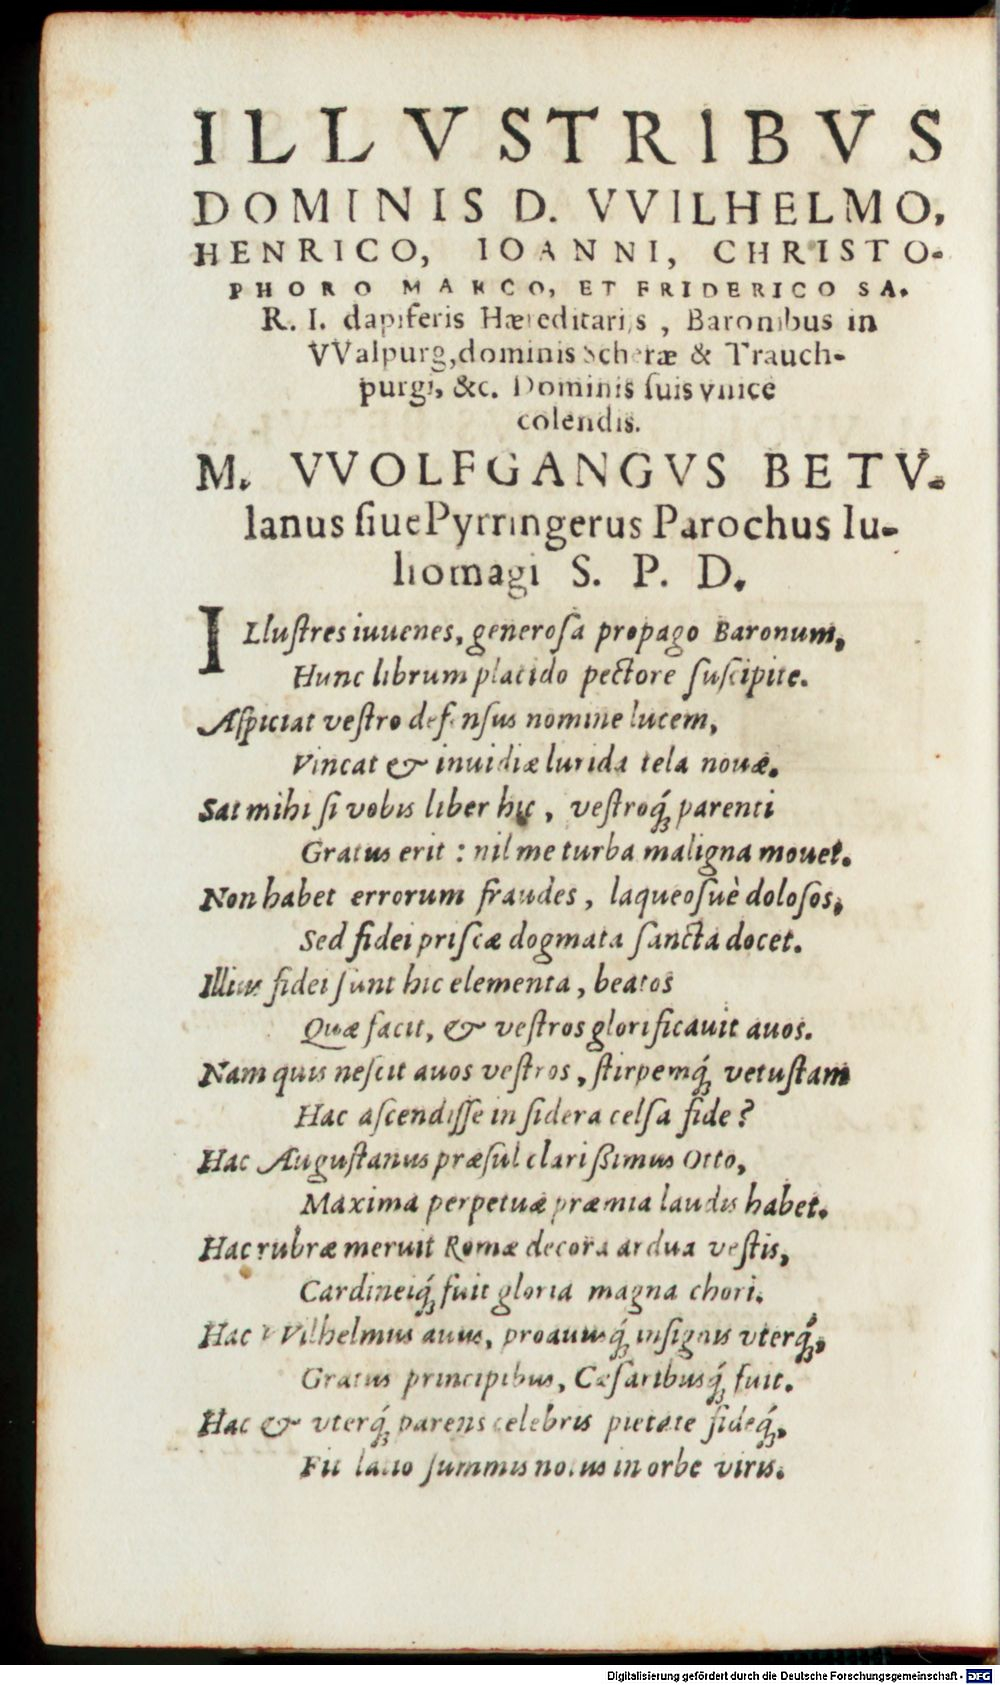 ILLVSTRIBVS
DOMINIS D. VVILHELMO,
HENRICO, IOANNI, CHRISTO-
PHORO MARCO, ET FRIDERICO SA.
R. I. dapiferis Hæreditarijs, Baronibus in
VValpurg, dominis Scheræ & Trauch-
purgi, &c. Dominis ſuis vnicè
colendis.
M. VVOLFGANGVS BETV-
lanus ſiue Pyrringerus Parochus Iu-
homagi S. P. D.
ILluſtres iuuenes, generoſa propago Baronum,
Hunc librum placido pectore ſuſcipite.
Aſpiciat veſtro defenſus nomine lucem,
Vincat & inuidiæ lurida tela nouæ.
Sat mihi ſi vobis liber hic, veſtroq́ꝫ parenti
Gratus erit : nil me turba maligna mouet.
Non habet errorum fraudes, laqueoſuè doloſos,
Sed fidei priſcæ dogmata ſancta docet.
Illius fidei ſunt hic elementa, beatos
Quæ facit, & veſtros glorificauit auos.
Nam quis neſcit auos veſtros, ſtirpemq́ꝫ vetuſtam
Hac aſcendiſſe in ſidera celſa fide?
Hac Auguſtanus præſul clariſſimus Otto,
Maxima perpetuæ præmia laudis habet.
Hac rubræ meruit Romæ decora ardua veſtis,
Cardineiq́ꝫ fuit gloria magna chori.
Hac VVilhelmus auus, proauusq́ꝫ inſignis vterq́ꝫ,
Gratus principibus, Cæſaribusq́ꝫ fuit.
Hac & vterq́ꝫ parens celebris pietate fideq́ꝫ,
Fit latio ſummis notus in orbe viris.
Digitalisierung gefördert durch die Deutsche Forschungsgemeinschaft - DFG